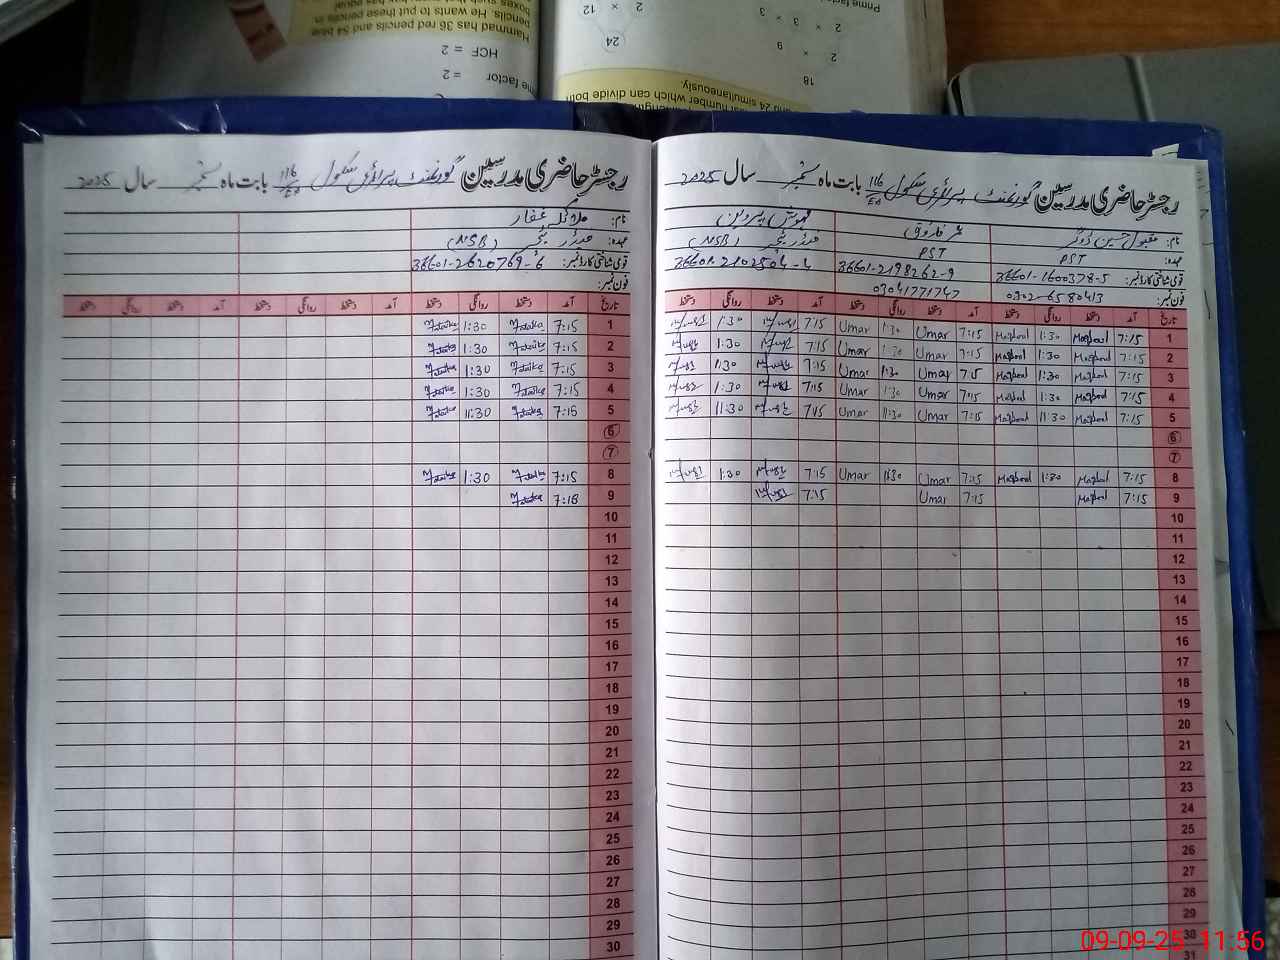 Hammad has 36 red pencils and 54 blue
pencils. He wants to put these pencils in
HCF = 2
= 2
24
2 × 12
18
2 × 9
2 × 3 × 3
number which can divide both
and 24 simultaneously.
رجسٹر حاضری مدرسین گورنمنٹ پرائمری سکول 116/EB بابت ماہ ستمبر سال 2025
نام: مقبول حسین ڈوگر عمر فاروق مہوش پروین
عہدہ: PST PST ٹیچر (NSB)
قومی شناختی کارڈ نمبر: 36601-1600378-5 36601-2198262-9 36601-2102504-4
فون نمبر: 0302-6580413 03041771747
تاریخ آمد دستخط روانگی دستخط آمد دستخط روانگی دستخط آمد دستخط روانگی دستخط
1 7:15 Maqbool 1:30 Maqbool 7:15 Umar 1:30 Umar 7:15 1:30
2 7:15 Maqbool 1:30 Maqbool 7:15 Umar 1:30 Umar 7:15 1:30
3 7:15 Maqbool 1:30 Maqbool 7:15 Umar 1:30 Umar 7:15 1:30
4 7:15 Maqbool 1:30 Maqbool 7:15 Umar 1:30 Umar 7:15 1:30
5 7:15 Maqbool 11:30 Maqbool 7:15 Umar 11:30 Umar 7:15 11:30
6
7
8 7:15 Maqbool 1:30 Maqbool 7:15 Umar 1:30 Umar 7:15 1:30
9 7:15 Maqbool 7:15 Umar 7:15
10
11
12
13
14
15
16
17
18
19
20
21
22
23
24
25
26
27
28
29
30
31
رجسٹر حاضری مدرسین گورنمنٹ پرائمری سکول 116/EB بابت ماہ ستمبر سال 2025
نام: ملائکہ غفار
عہدہ: ٹیچر (NSB)
قومی شناختی کارڈ نمبر: 36601-2620769-6
فون نمبر:
تاریخ آمد دستخط روانگی دستخط آمد دستخط روانگی دستخط آمد دستخط روانگی دستخط
1 7:15 1:30
2 7:15 1:30
3 7:15 1:30
4 7:15 1:30
5 7:15 11:30
6
7
8 7:15 1:30
9 7:15
10
11
12
13
14
15
16
17
18
19
20
21
22
23
24
25
26
27
28
29
30
09-09-25 11:56